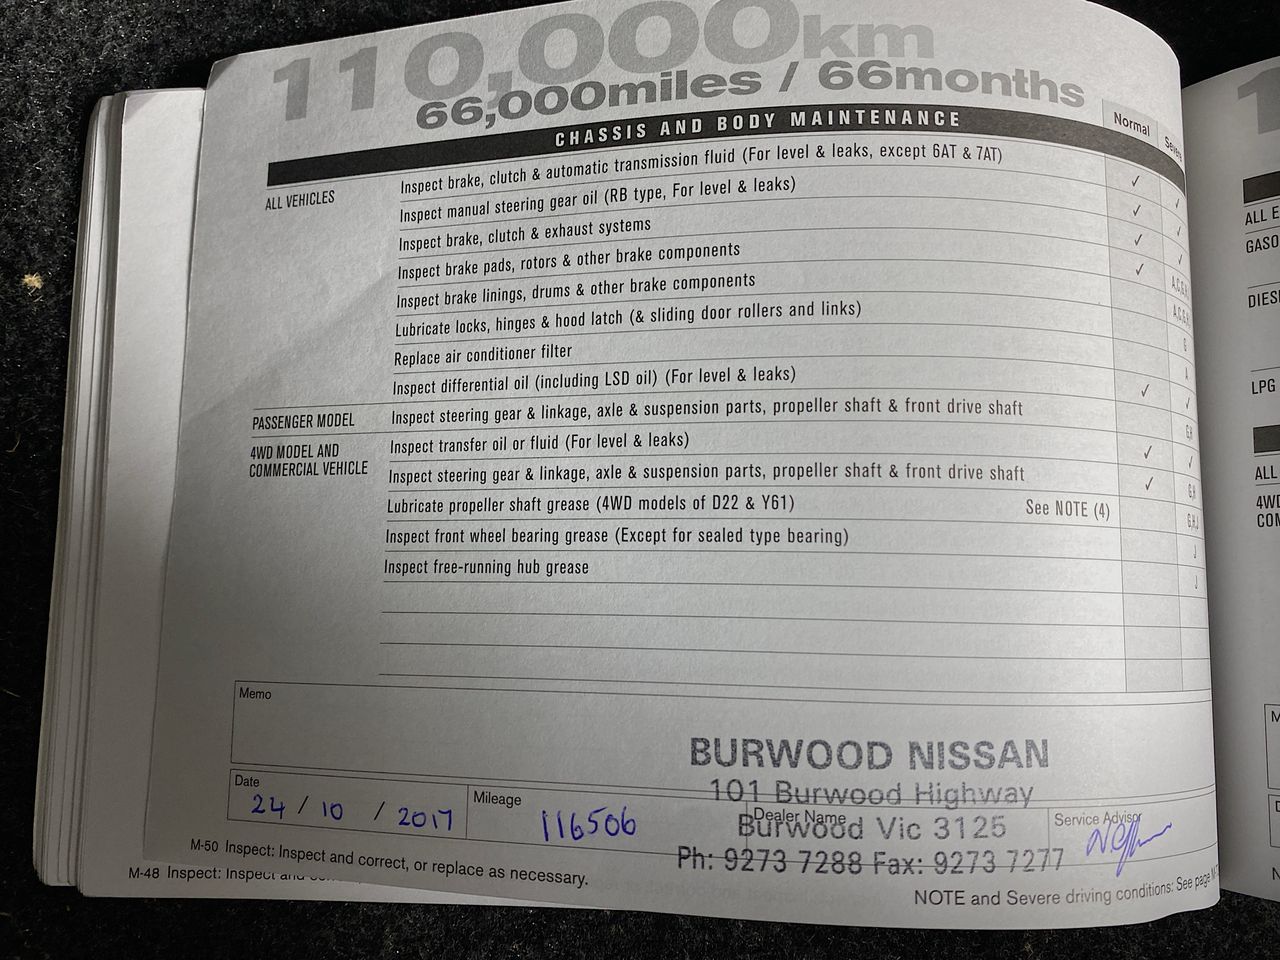 110,000km
66,000miles / 66months
CHASSIS AND BODY MAINTENANCE
Normal
ALL VEHICLES
Inspect brake, clutch & automatic transmission fluid (For level & leaks, except 6AT & 7AT) ✓ ✓
Inspect manual steering gear oil (RB type, For level & leaks) ✓ ✓
Inspect brake, clutch & exhaust systems ✓ ✓
Inspect brake pads, rotors & other brake components ✓
Inspect brake linings, drums & other brake components
Lubricate locks, hinges & hood latch (& sliding door rollers and links) G
Replace air conditioner filter A
Inspect differential oil (including LSD oil) (For level & leaks) ✓ ✓
PASSENGER MODEL
Inspect steering gear & linkage, axle & suspension parts, propeller shaft & front drive shaft G,H
4WD MODEL AND
COMMERCIAL VEHICLE
Inspect transfer oil or fluid (For level & leaks) ✓ ✓
Inspect steering gear & linkage, axle & suspension parts, propeller shaft & front drive shaft ✓ G,H
Lubricate propeller shaft grease (4WD models of D22 & Y61) See NOTE (4) G,H,J
Inspect front wheel bearing grease (Except for sealed type bearing) J
Inspect free-running hub grease J
Memo
BURWOOD NISSAN
101 Burwood Highway
Burwood Vic 3125
Ph: 9273 7288 Fax: 9273 7277
Date
24 / 10 / 2017
Mileage
116506
Dealer Name
Service Advisor
M-50 Inspect: Inspect and correct, or replace as necessary.
M-48 Inspect: Inspect and
NOTE and Severe driving conditions: See page
ALL
GASO
DIES
LPG
ALL
4WD
COM